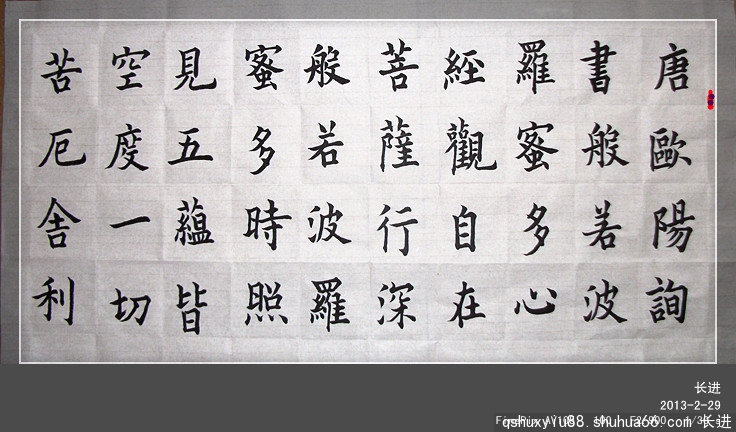 唐歐陽詢
書般若波
羅蜜多心
經觀自在
菩薩行深
般若波羅
蜜多時照
見五蘊皆
空度一切
苦厄舍利
长进
2013-2-29
qshuxyiu88.shuhua66.com 长进